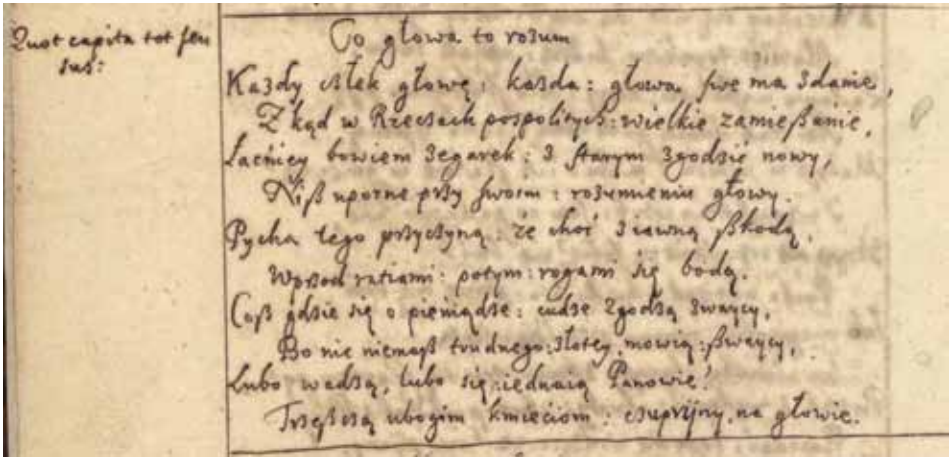 Quot capita tot sen
sus:
Co głowa to rozum
Każdy człek głowę: każda: głowa swe ma zdanie,
Z kąd w Rzeczach pospolitych: wielkie zamießanie,
Łacńiey bowiem zegarek: z starym zgodzić nowy,
Niß uporne przy swoim: rozumieniu głowy.
Pycha tego przyczyną: że choć z iawną ßkodą,
Wprzod ratiami: potym: rogami się bodą.
Coß gdzie się o pieniądze: cudze zgodzą
Bo nic niemaß trudnego: złotey, mowią:
Lubo wadzą, lubo się: iednaią Panowie:
Trzęszczą ubogim kmieciom: czupryny, na głowie.